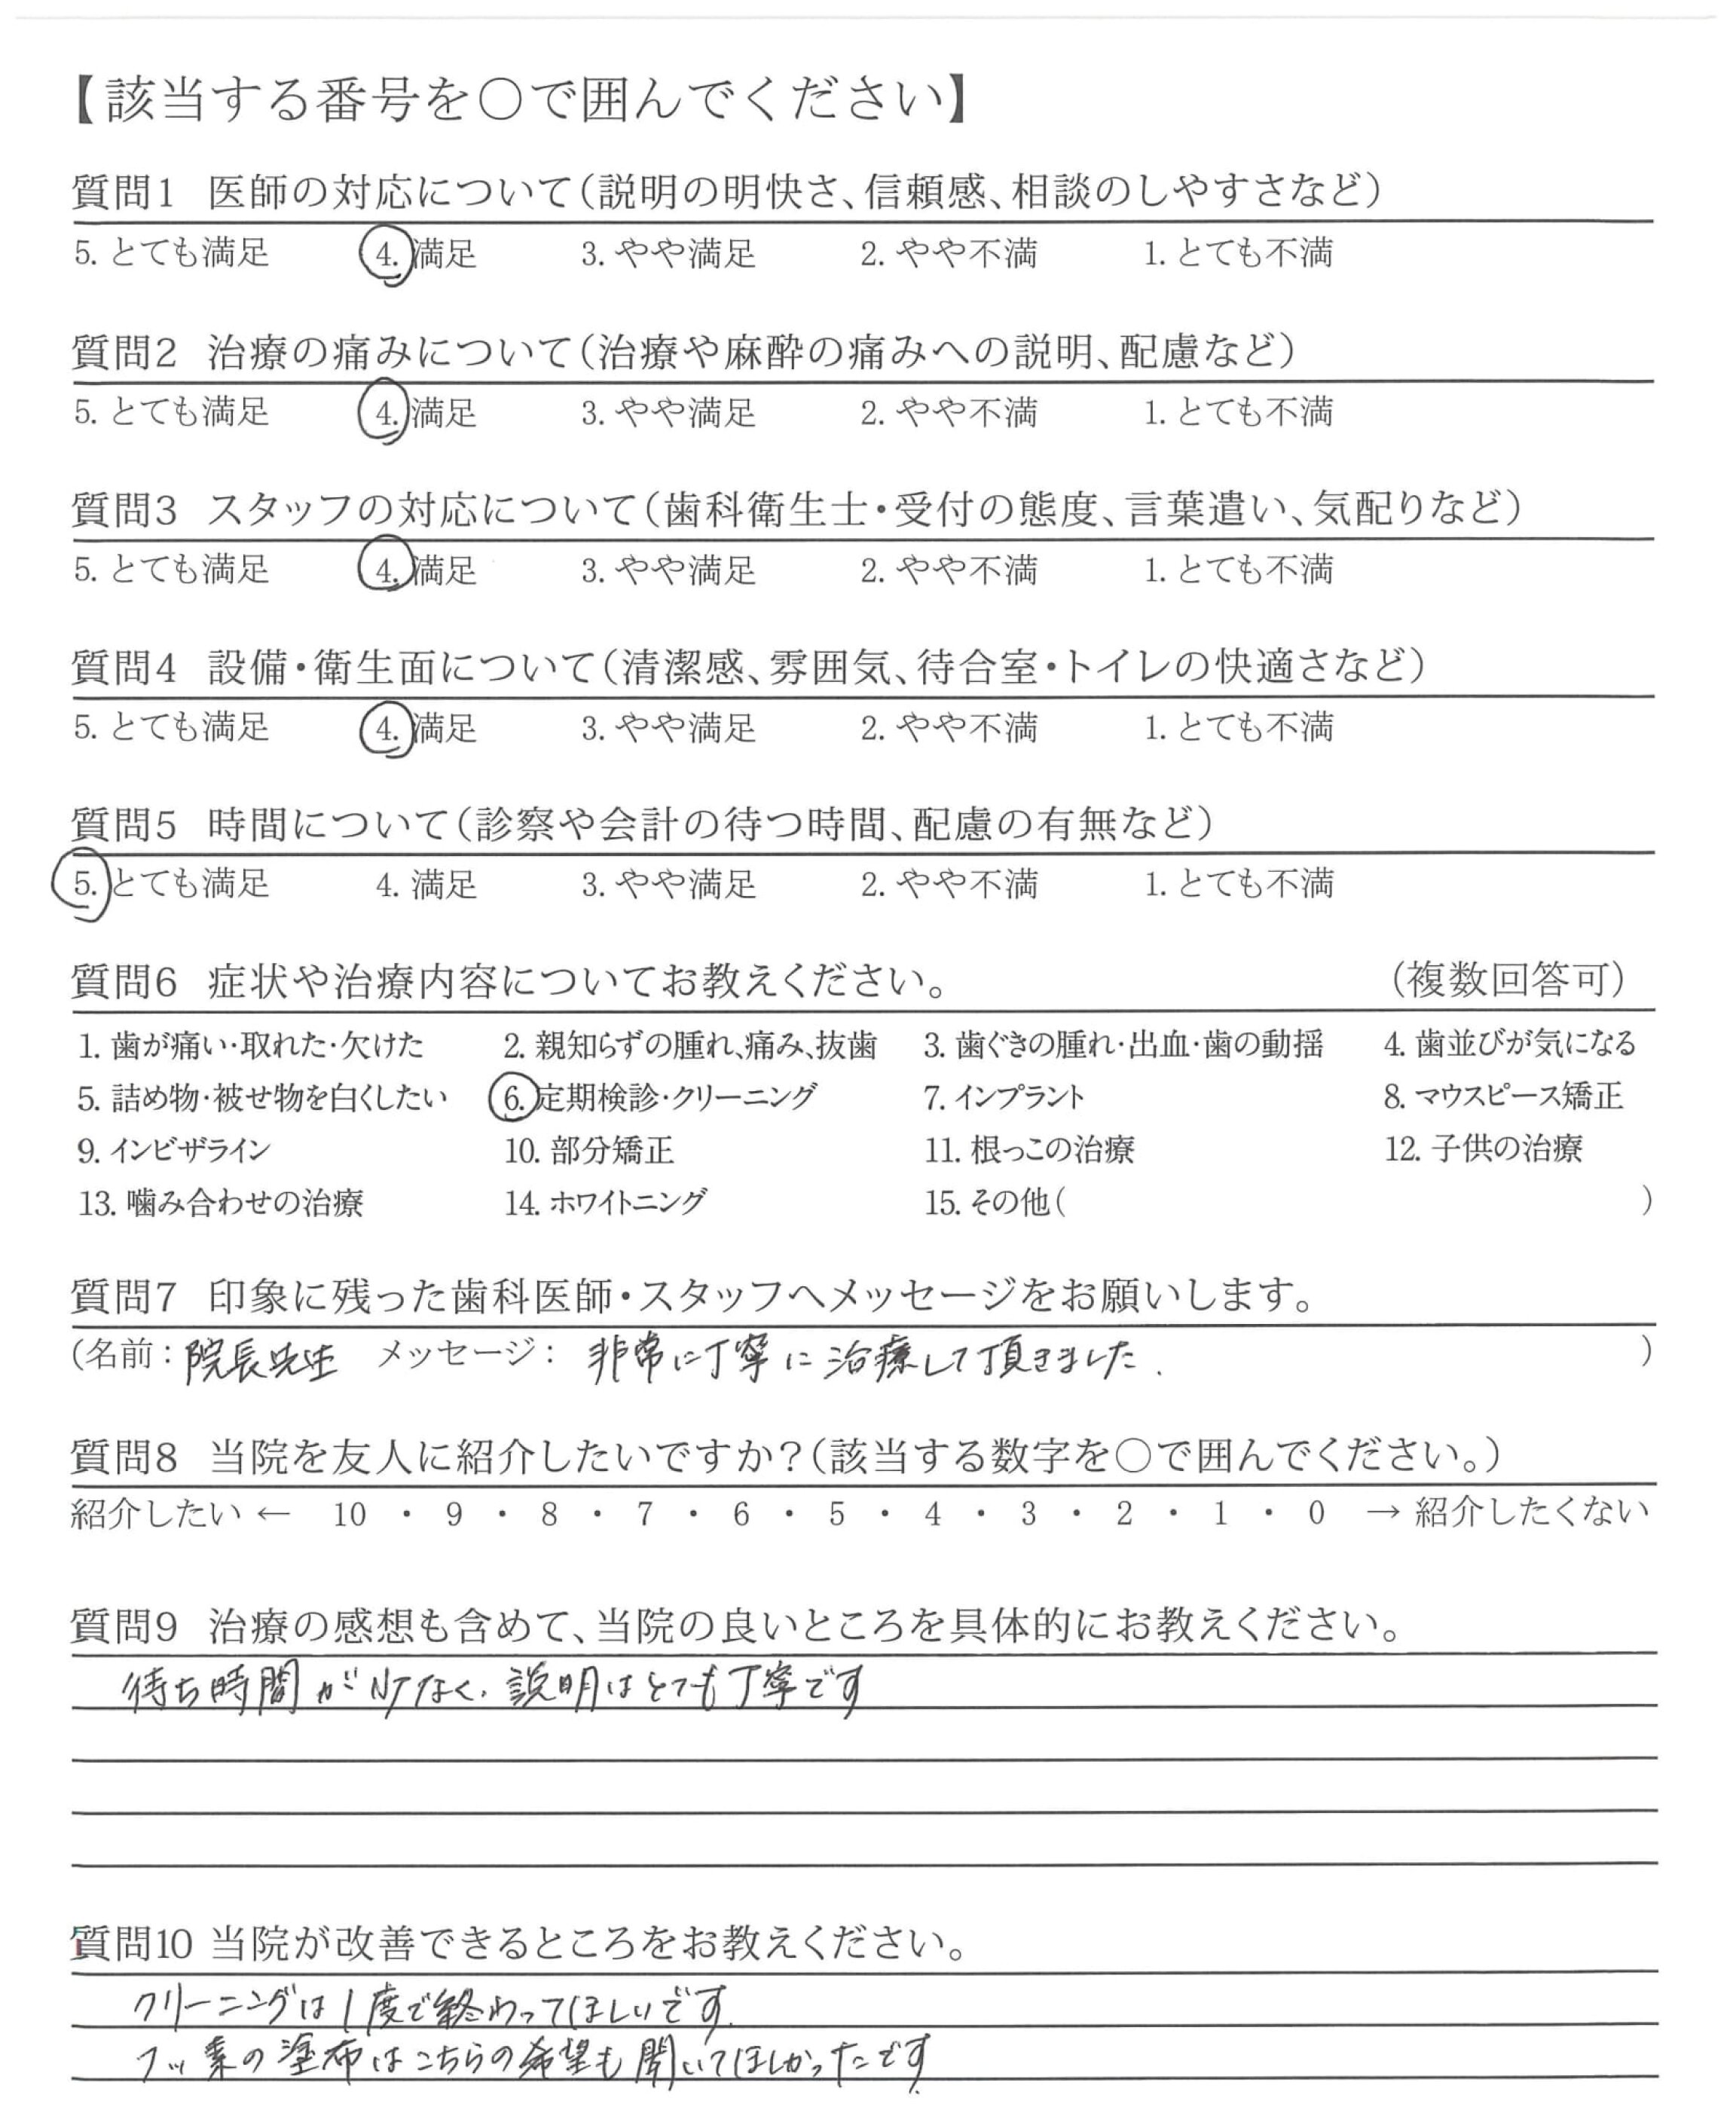 【該当する番号を○で囲んでください】
質問1 医師の対応について(説明の明快さ、信頼感、相談のしやすさなど)
5. とても満足 4. 満足 3. やや満足 2. やや不満 1. とても不満
質問2 治療の痛みについて(治療や麻酔の痛みへの説明、配慮など)
5. とても満足 4. 満足 3. やや満足 2. やや不満 1. とても不満
質問3 スタッフの対応について(歯科衛生士・受付の態度、言葉遣い、気配りなど)
5. とても満足 4. 満足 3. やや満足 2. やや不満 1. とても不満
質問4 設備・衛生面について(清潔感、雰囲気、待合室・トイレの快適さなど)
5. とても満足 4. 満足 3. やや満足 2. やや不満 1. とても不満
質問5 時間について(診察や会計の待つ時間、配慮の有無など)
5. とても満足 4. 満足 3. やや満足 2. やや不満 1. とても不満
質問6 症状や治療内容についてお教えください。 (複数回答可)
1. 歯が痛い・取れた・欠けた 2. 親知らずの腫れ、痛み、抜歯 3. 歯ぐきの腫れ・出血・歯の動揺 4. 歯並びが気になる
5. 詰め物・被せ物を白くしたい 6. 定期検診・クリーニング 7. インプラント 8. マウスピース矯正
9. インビザライン 10. 部分矯正 11. 根っこの治療 12. 子供の治療
13. 噛み合わせの治療 14. ホワイトニング 15. その他( )
質問7 印象に残った歯科医師・スタッフへメッセージをお願いします。
(名前：院長先生 メッセージ： 非常に丁寧に治療して頂きました. )
質問8 当院を友人に紹介したいですか?(該当する数字を○で囲んでください。)
紹介したい ← 10 ・ 9 ・ 8 ・ 7 ・ 6 ・ 5 ・ 4 ・ 3 ・ 2 ・ 1 ・ 0 → 紹介したくない
質問9 治療の感想も含めて、当院の良いところを具体的にお教えください。
待ち時間が少なく、説明はとても丁寧です
質問10 当院が改善できるところをお教えください。
クリーニングは1度で終わってほしいです.
フッ素の塗布はこちらの希望も聞いてほしかったです.